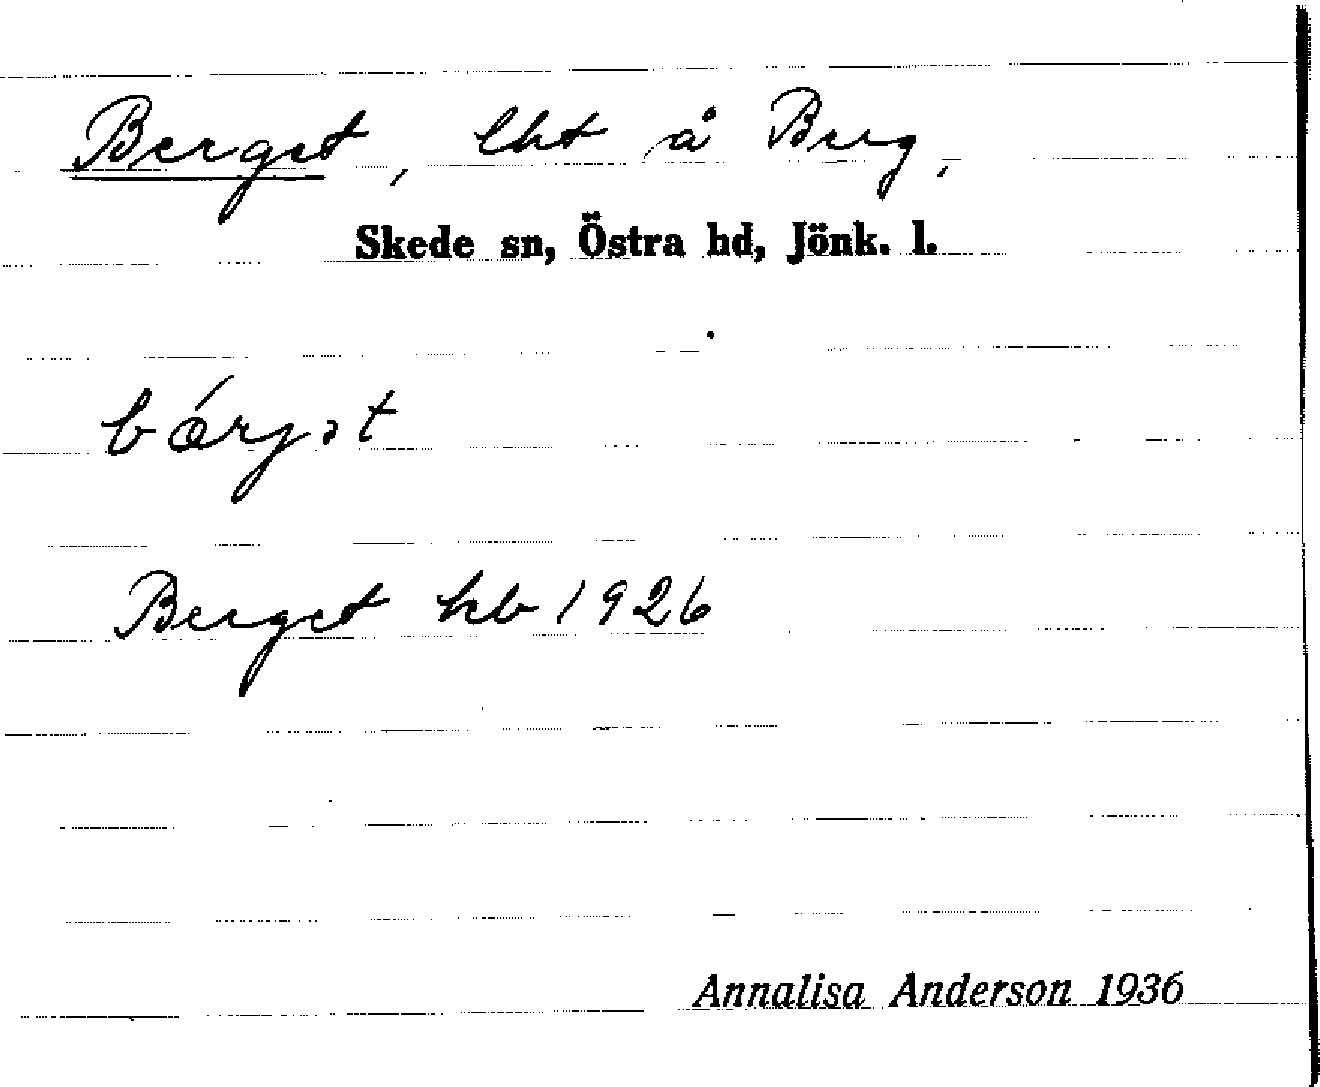 Berget, lht å Berg,
Skede sn, Östra hd, Jönk. l.
bǽrjət
Berget kb 1926
Annalisa Anderson 1936